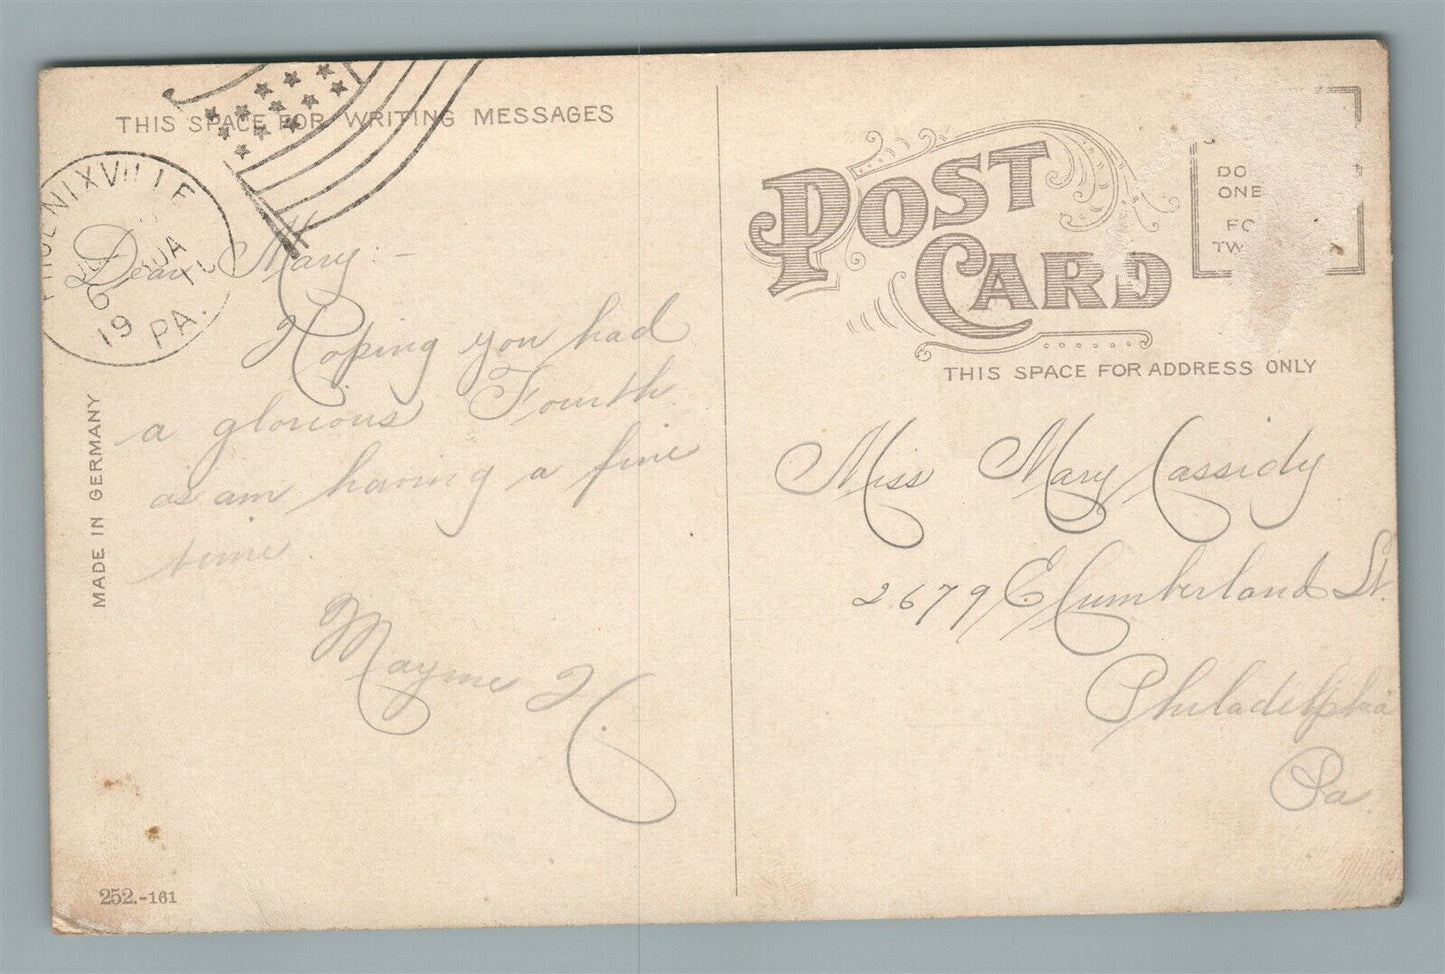 THIS SPACE FOR WRITING MESSAGES
PHOENIXVILLE
PA.
19
Dear Mary:-
Hoping you had
a glorious Fourth.
as am having a fine
time.
Mayme
MADE IN GERMANY
252.-161
POST
CARD
DO
ONE
TW
THIS SPACE FOR ADDRESS ONLY
Miss Mary Cassidy
2679 E Cumberland St.
Philadelphia
Pa.